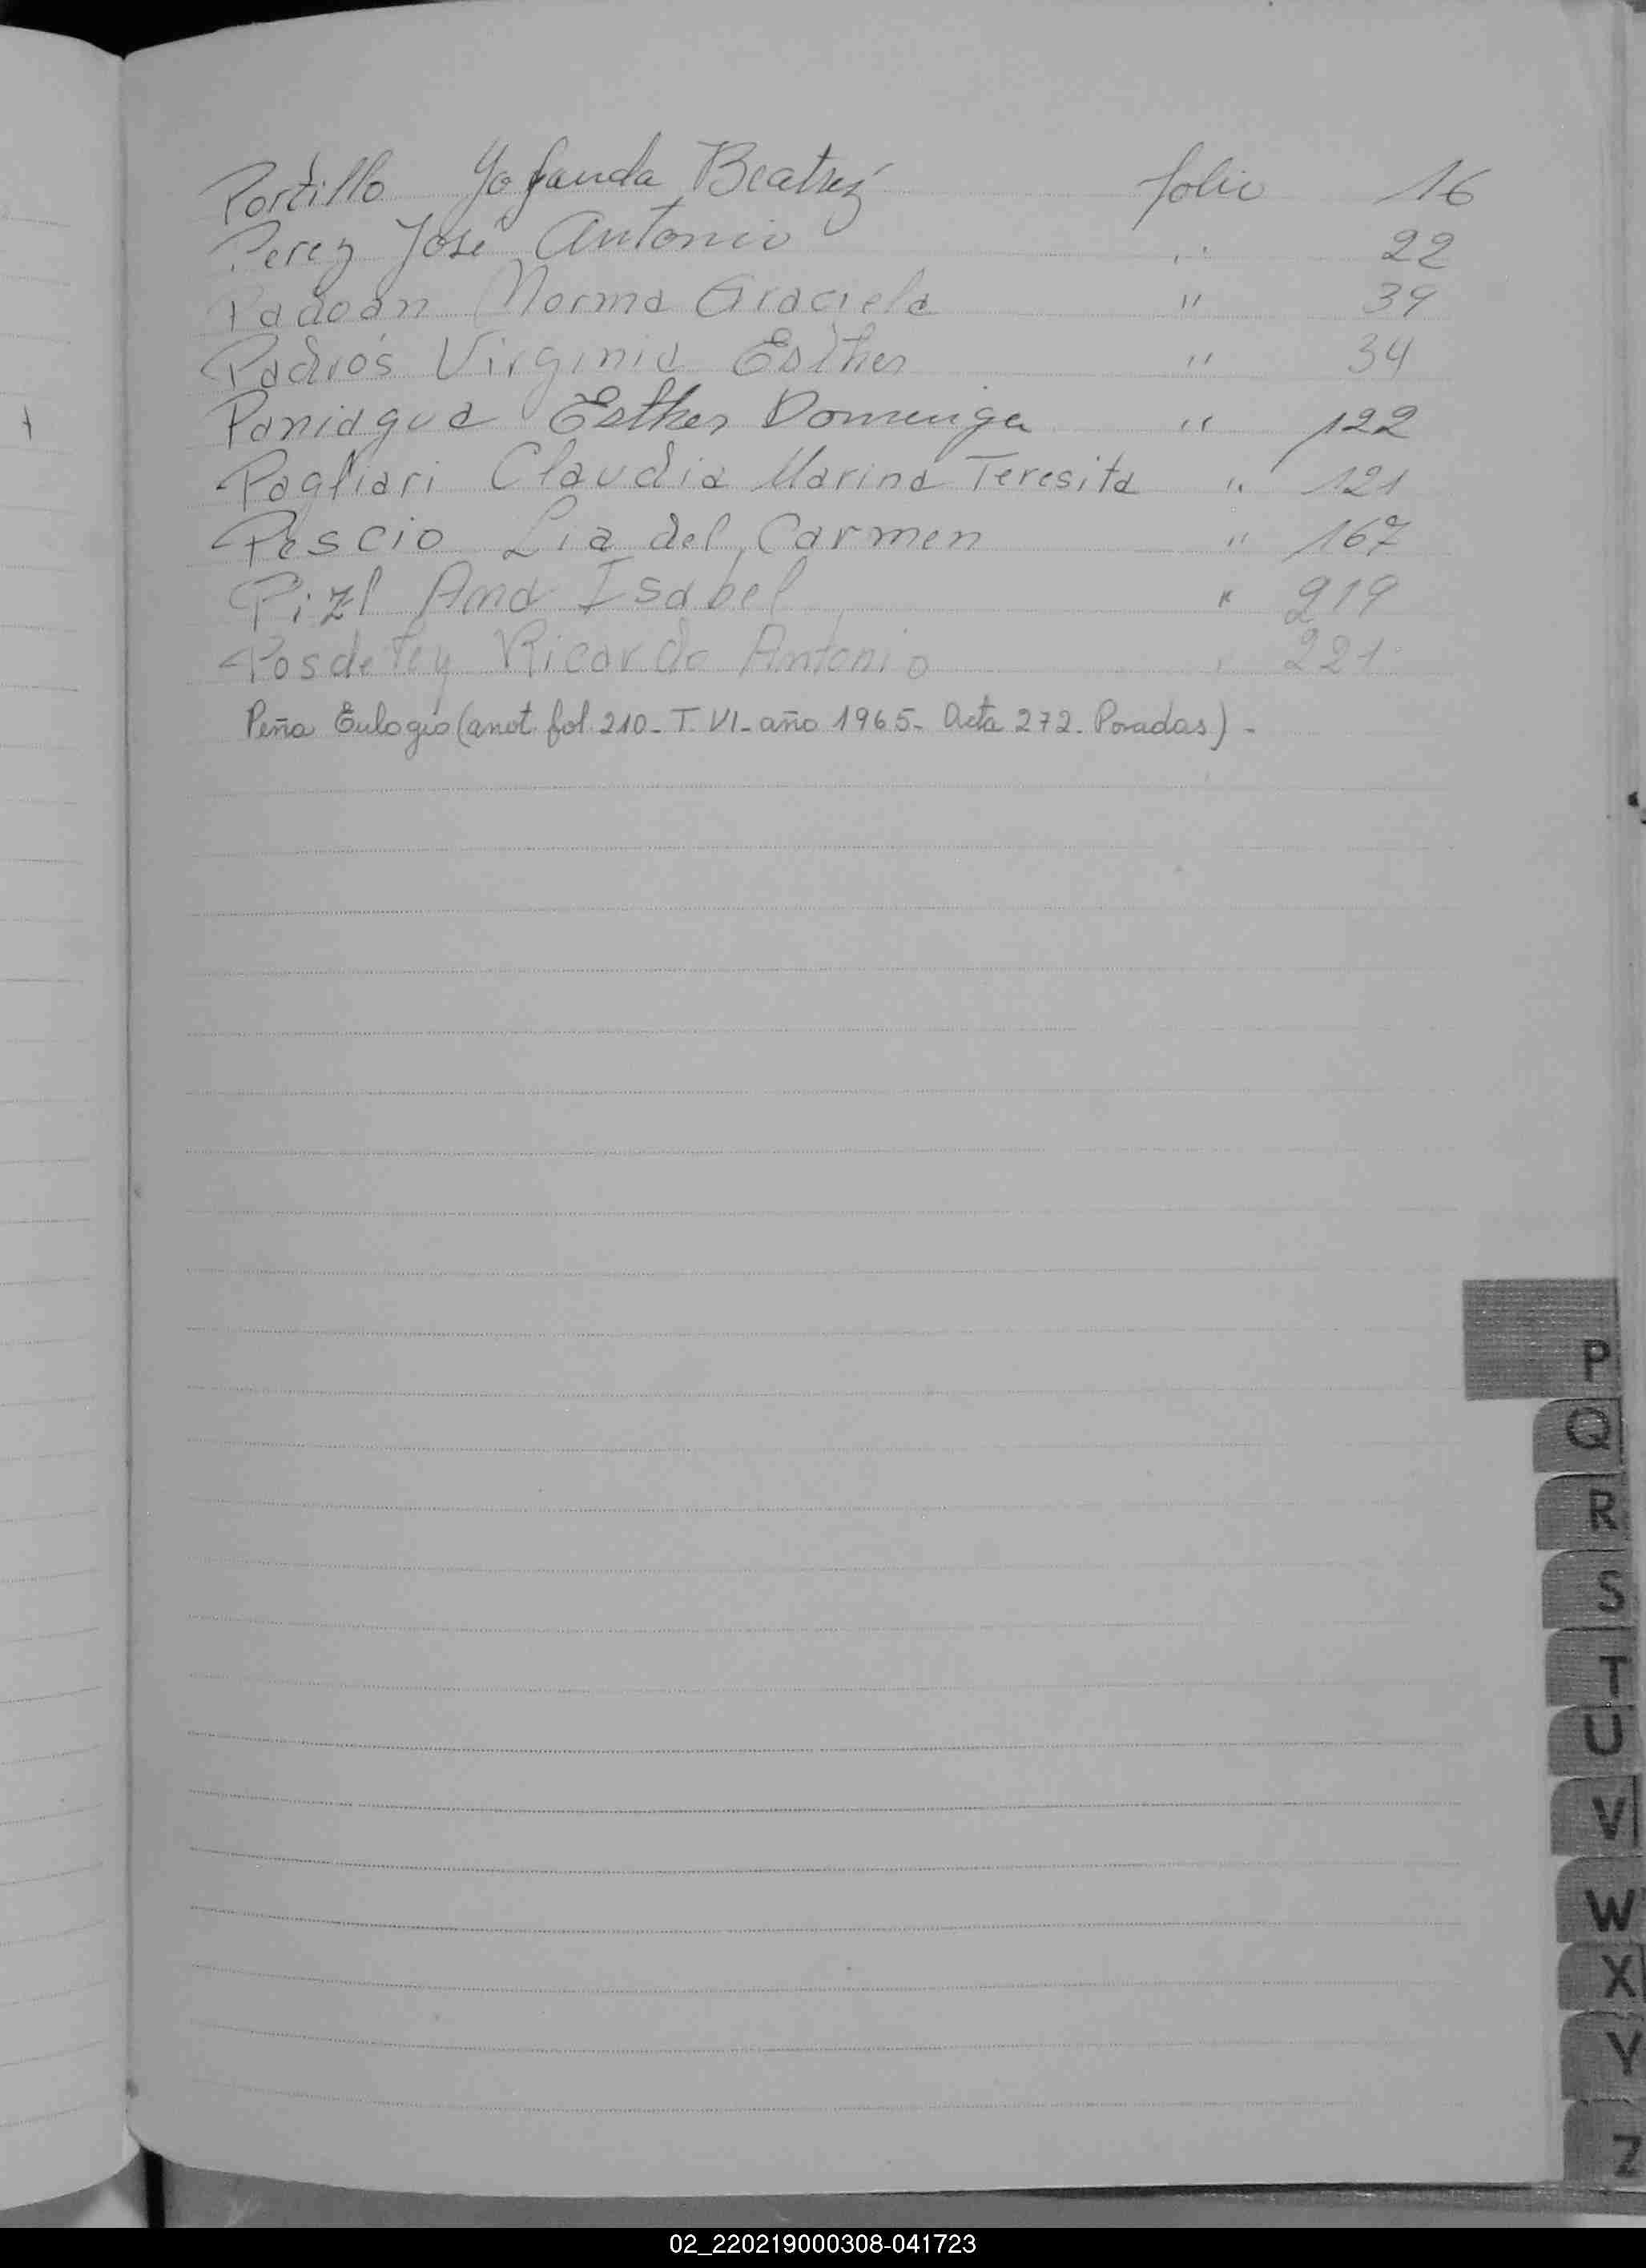 Portillo Yolanda Beatriz folio 16
Perez José Antonio " 22
Padoan Norma Graciela " 39
Padrós Virginia Esther " 34
Paniagua Esther Dominga " 122
Pagliari Claudia Marina Teresita " 121
Pescio Lia del Carmen " 167
Pizl Ana Isabel " 219
Posdeley Ricardo Antonio " 221
Peña Eulogio (anot fol. 210 - T. VI - año 1965 - Acta 272 - Posadas) -
P
Q
R
S
T
U
V
W
X
Y
Z
02_220219000308-041723